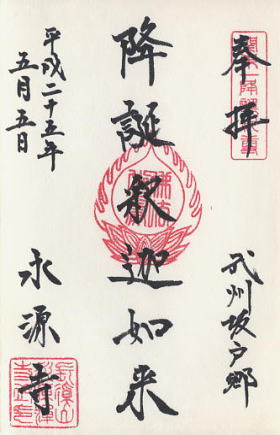 奉拝
武州坂戸郷
降誕釈迦如来
平成二十五年
五月五日
永源寺